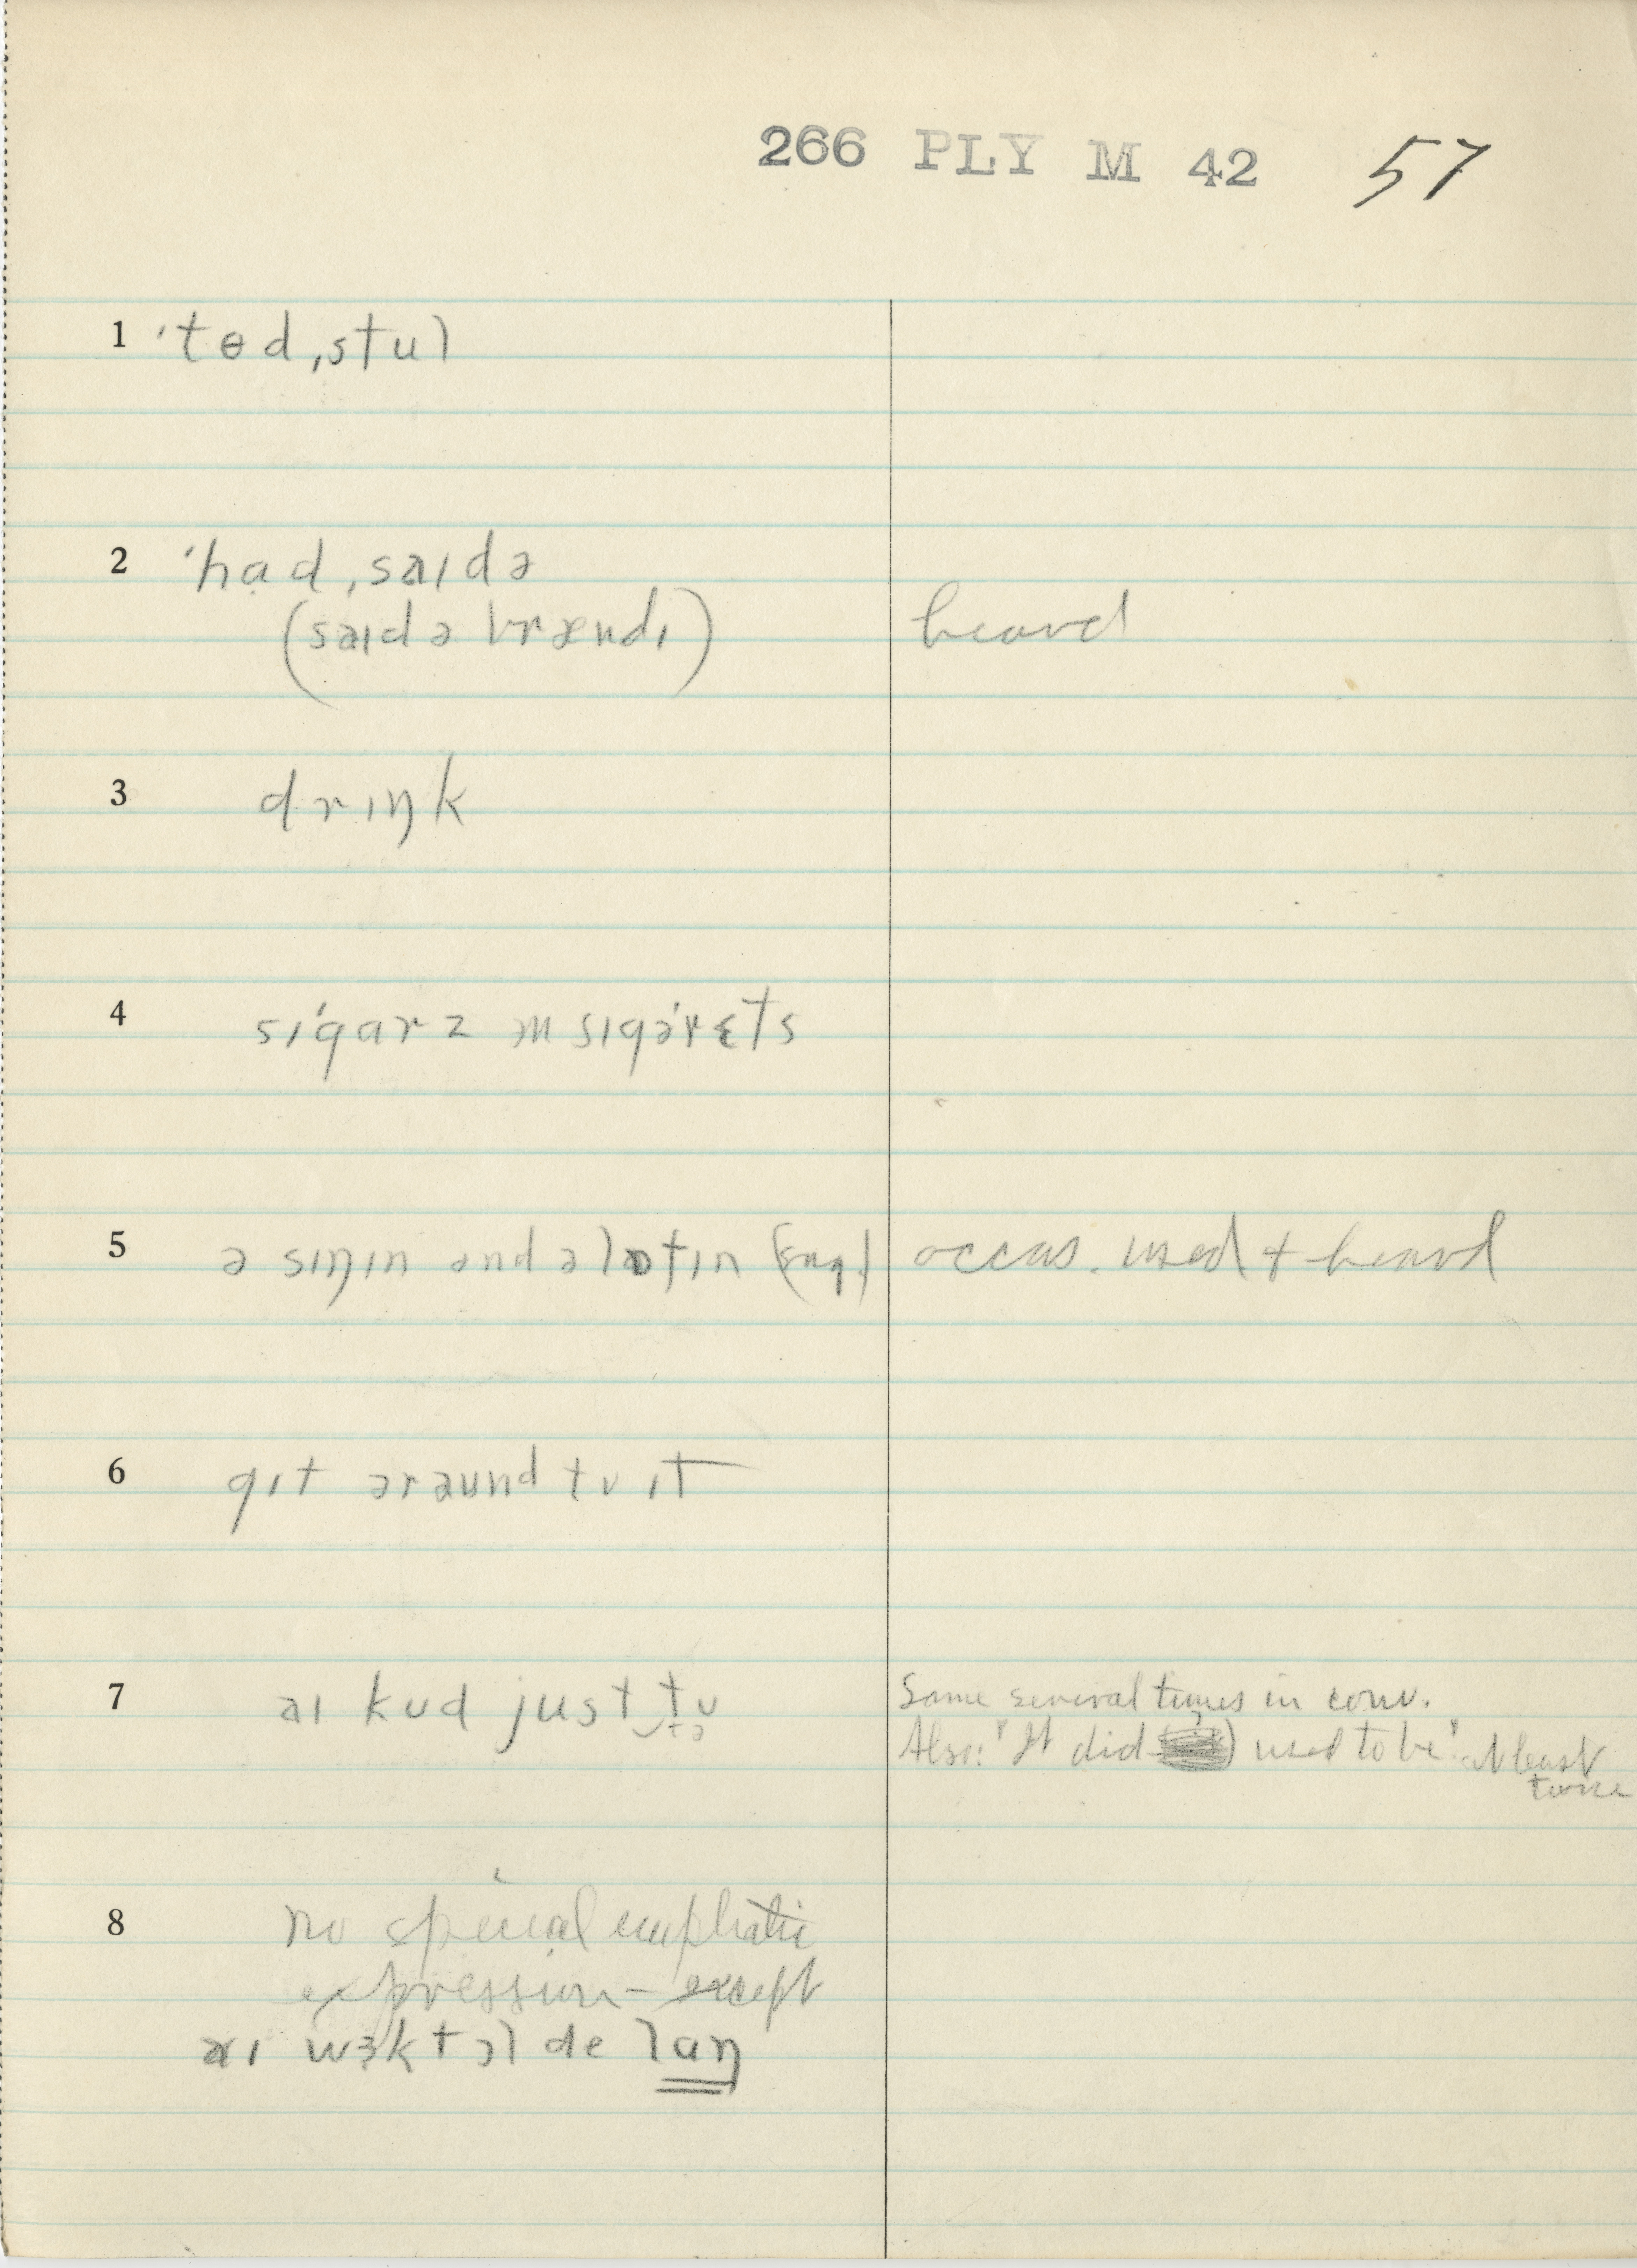 266 PLY M 42 57
1 ˈtɵd ˌstul
2 ˈhad ˌsaɪdə
(saɪdə brændɪ) heard
3 drɪŋk
4 sɪˈgarz ɪn sɪgəˈrɛts
5 ə sɪŋɪn and ə lɒfɪn (sug.) occas. used + heard
6 gɪt əraund tʊ ɪt
7 aɪ kʊd just tʊ Same several times in conv.
tə Also: "It did used to be" at least
twice
8 no special emphatic
expression – except
aɪ wɜkt ɔl de laŋ